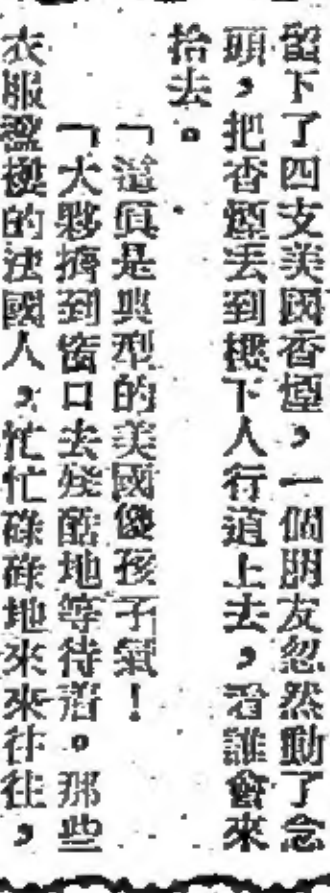 留下了四支美國香煙，一個朋友忽然動了念
頭，把香煙丟到樓下人行道上去，看誰會來
拾去。
「這眞是典型的美國傻孩子氣！
「大夥擠到窗口去殘酷地等待着。那些
衣服襤褸的法國人，忙忙碌碌地來來往往，